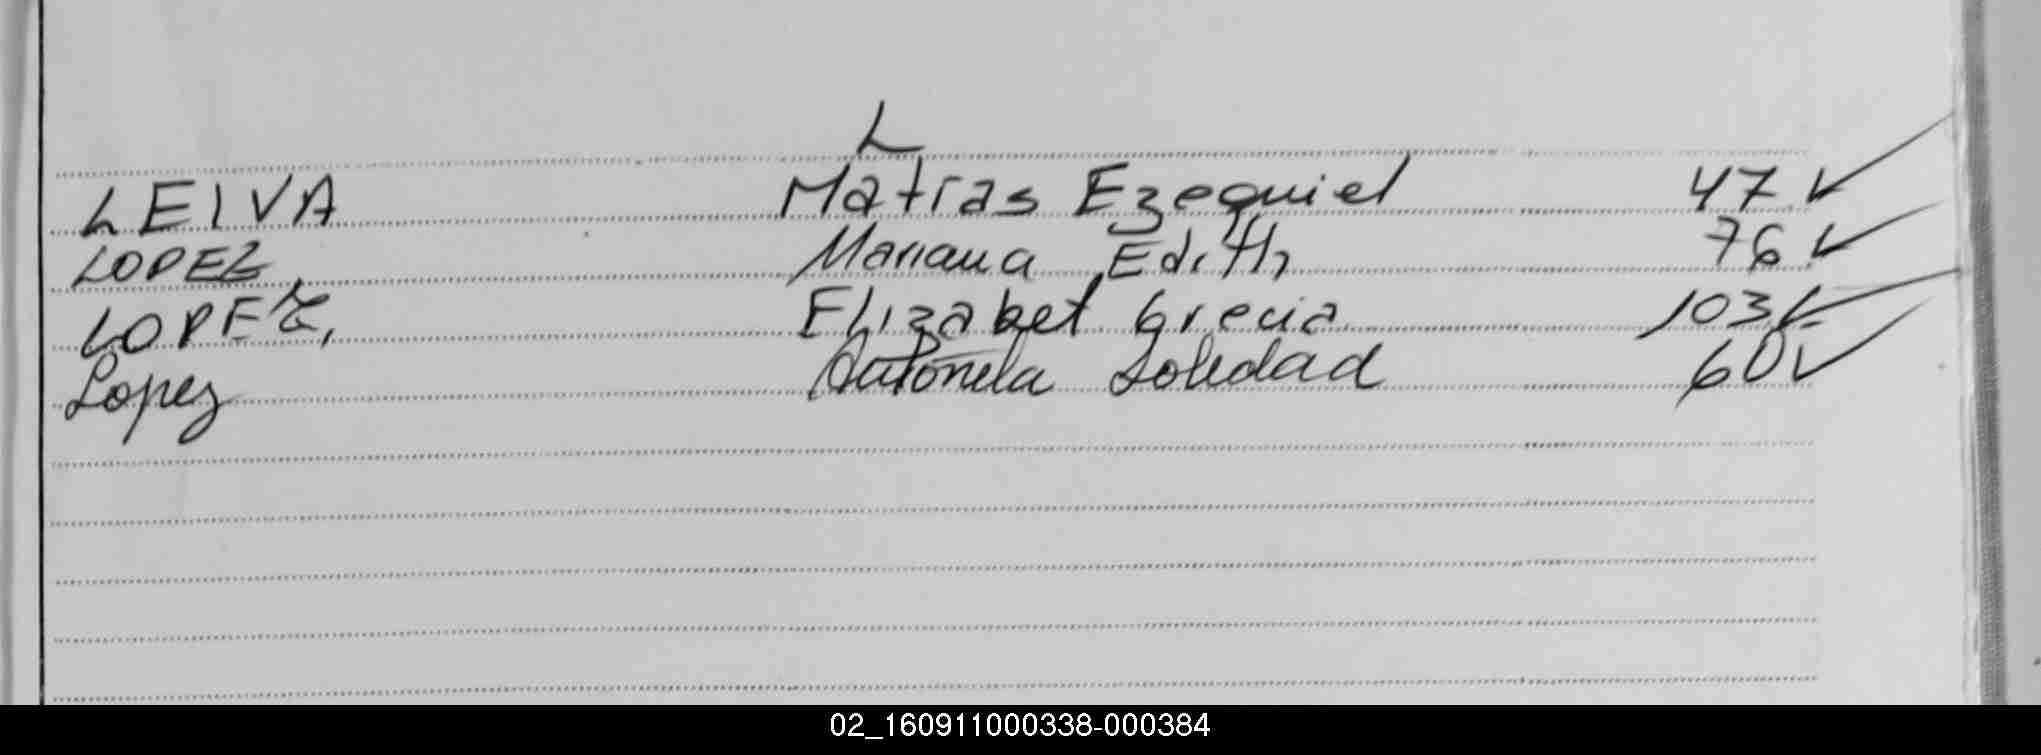 L
LEIVA Matias Ezequiel 47 ✓
LOPEZ Mariana Edith 76 ✓
LOPEZ, Elizabet Grecia 103 ✓
Lopez Antonela Soledad 60 ✓
02_160911000338-000384